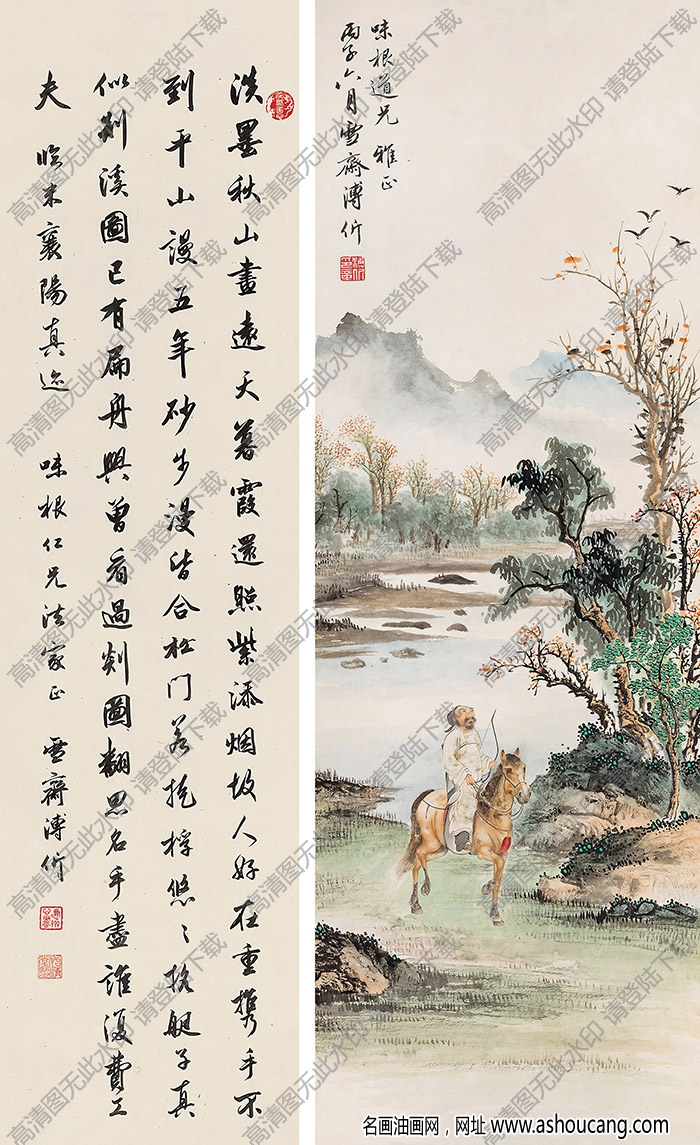 淡墨秋山畫遠天暮霞還照紫添烟故人好在重攜手不
到平山謾五年砂步漫皆合松門若掩桴悠々搖艇子真
似剡溪圖已有扁舟興曾看過剡圖翻思名手盡誰復費工
夫 臨米襄陽真迹 味根仁兄法家正 雪齋溥伒
味根道兄雅正
丙子六月雪齋溥伒
高清图无此水印 请登陆下载
名画油画网，网址 www.ashoucang.com